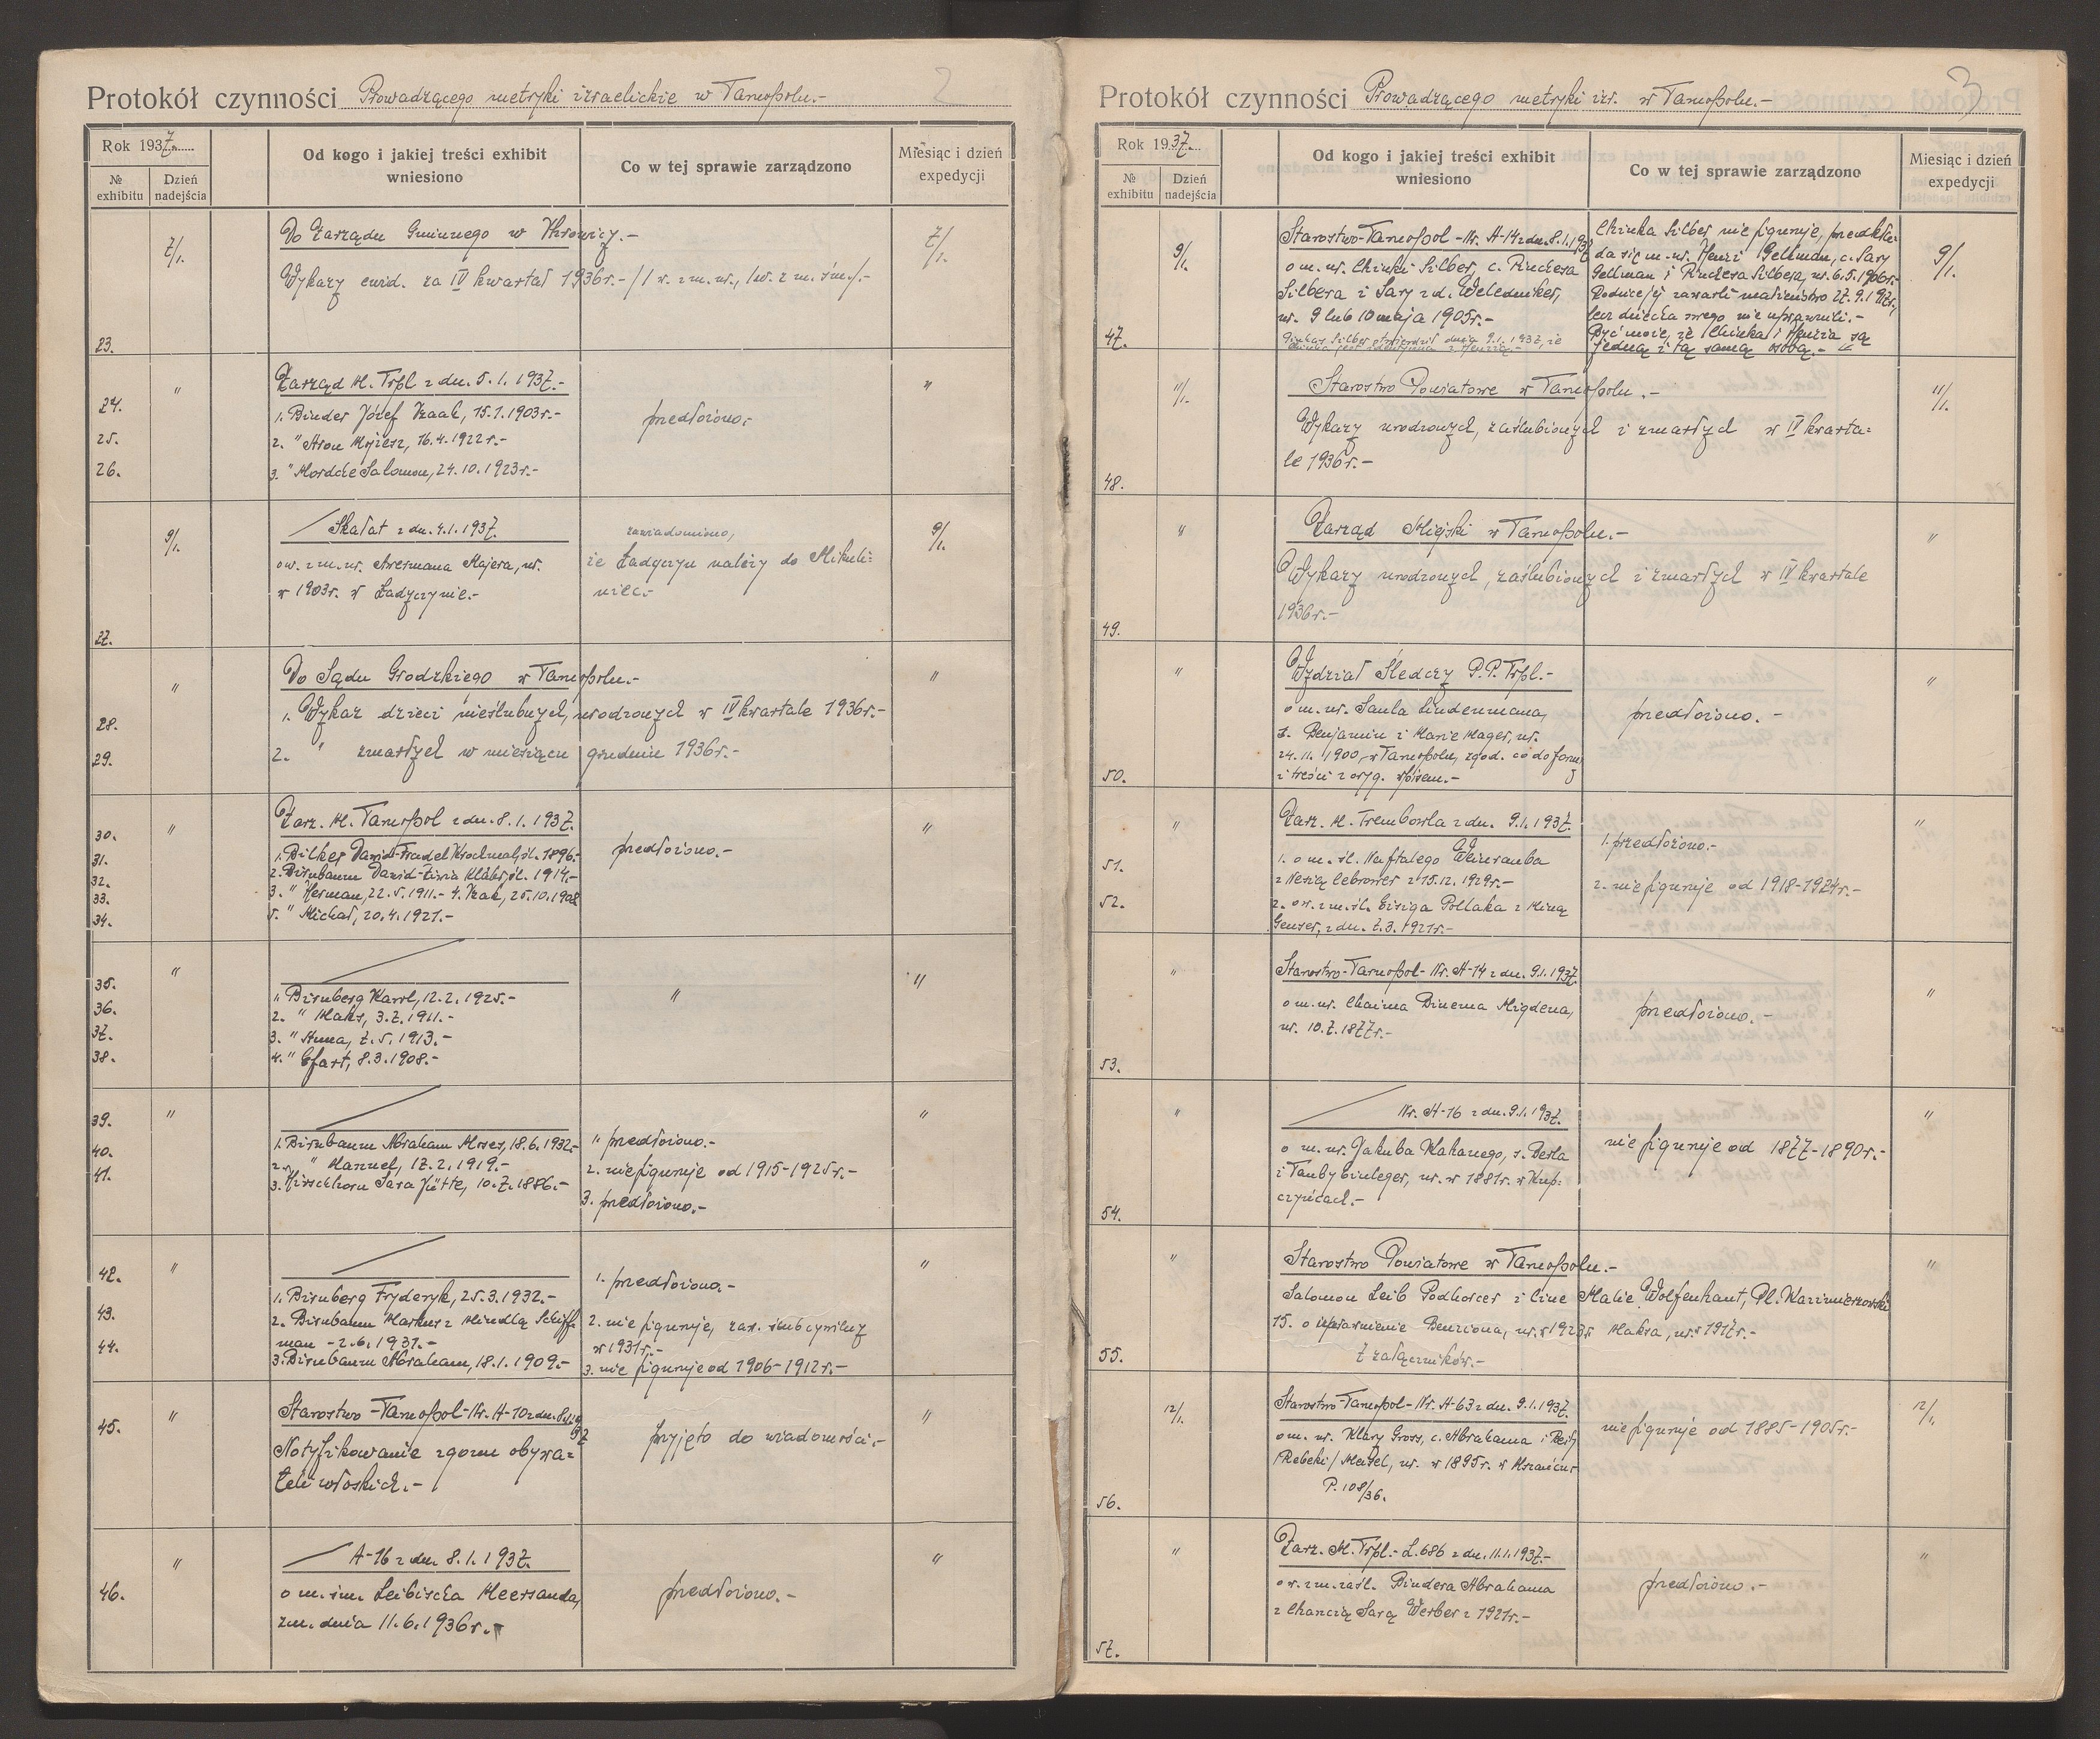 2
Protokół czynności Prowadzącego metryki izraelickie w Tarnopolu.-
Rok 1937
№ exhibitu
Dzień nadejścia
Od kogo i jakiej treści exhibit
wniesiono
Co w tej sprawie zarządzono
Miesiąc i dzień
expedycji
23.
7/1.
Do Zarządu Gminnego w
7/1.
Wykazy ewid. za IV kwartał 1936r.-
24.
"
Zarząd M. Trpl z dn. 5.1.1937.-
"
1. Binder Józef Izaak, 15.1.1903r.-
przedłożono.-
25.
2. " Aron Mojżesz, 16.4.1922r.-
26.
3. " Mordche Salomon, 24.10.1923r.-
27.
9/1.
Skałat z dn. 4.1.1937.
zawiadomiono,
9/1.
ow. z m. ur. Majera, ur.
że Ładyczyn należy do Mikuli-
w 1903r. w Ładyczynie.-
niec.-
"
Do Sądu Grodzkiego w Tarnopolu.-
"
28.
1. Wykaz dzieci nieślubnych, urodzonych w IV kwartale 1936r.-
29.
2. " zmarłych w miesiącu grudniu 1936r.-
30.
"
Zarz. M. Tarnopol z dn. 8.1.1937.
"
31.
1. Bilker Dawid-Fradel Krochmal, śl. 1896.-
przedłożono.-
32.
2. Birnbaum Dawid- śl. 1914.-
33.
3. " Herman, 22.5.1911.- 4. Izak, 25.10.1908
34.
5. " Michał, 20.4.1921.-
35.
"
"
36.
" Birnberg Karol, 12.2.1925.-
"
37.
2. " Maks, 3.7.1911.-
38.
3. " Anna, 7.5.1913.-
4. " 8.3.1908.-
39.
"
"
40.
1. Birnbaum Abraham Moses, 18.6.1932.-
" przedłożono.-
41.
2. " Manuel, 17.2.1919.-
2. nie figuruje od 1915-1925r.-
3. Hirschhorn Sara Jütte, 10.7.1886.-
3. przedłożono.-
42.
"
"
1. Birnberg Fryderyk, 25.3.1932.-
1. przedłożono.-
43.
2. Birnbaum Markus z Mindlą Schiff-
2. nie figuruje, zaw. ślub cywilny
44.
man -2.6.1931.-
w 1931r.-
3. Birnbaum Abraham, 18.1.1909.-
3. nie figuruje od 1906-1912r.-
45.
"
Starostwo-Tarnopol-Nr. A-10 z dn.
"
Notyfikowanie zgonu obywa-
przyjęto do wiadomości.-
teli włoskich.-
46.
"
A-16 z dn. 8.1.1937.
"
o m. śm. Leibischa Meersanda,
przedłożono.-
zm. dnia 11.6.1936r.-
3
Protokół czynności Prowadzącego metryki izr. w Tarnopolu.-
Rok 1937.
№ exhibitu
Dzień nadejścia
Od kogo i jakiej treści exhibit
wniesiono
Co w tej sprawie zarządzono
Miesiąc i dzień
expedycji
47.
9/1.
Starostwo-Tarnopol-Nr. A-14 z dn. 8.1.1937
o m. ur. Chinki Silber, c. Pinchasa
Silbera i Sary z d. Weledniker,
ur. 9 lub 10 maja 1905r.-
Pinkas Silber stwierdził dnia 9.1.1937, że
Chinka jest identyczna z Henzią.-
Chinka Silber nie figuruje, przedkła-
da się m. ur. Henzi Gellman, c. Sary
Gellman i Pinchasa Silbera, ur. 6.5.1906r.-
Rodzice jej zawarli małżeństwo 27.9.1917r.,
lecz dziecka swego nie uprawnili.-
Być może, że Chinka i Henzia są
jedną i tą samą osobą.-
9/1.
48.
11/1.
Starostwo Powiatowe w Tarnopolu.-
11/1.
Wykazy urodzonych, zaślubionych i zmarłych w IV kwarta-
le 1936r.-
49.
"
Zarząd Miejski w Tarnopolu.-
"
Wykazy urodzonych, zaślubionych i zmarłych w IV kwartale
1936r.-
50.
"
Wydział Śledczy P.P. Trpl.-
"
o m. ur. Saula Lindenmana,
przedłożono.-
s. Benjamin i Marie Mager, ur.
24.11.1900, w Tarnopolu, zgod. co do formy
i treści z oryg. wpisem.-
"
Zarz. M. Trembowla z dn. 9.1.1937.
"
51.
1. o m. śl. Naftalego Weinrauba
1. przedłożono.-
z z 15.12.1929r.-
2. nie figuruje od 1918-1924r.-
52.
2. ow. z m. śl. Eisiga Pollaka z Miną
Genser, z dn. 7.3.1921r.-
53.
"
Starostwo-Tarnopol-Nr. A-14 z dn. 9.1.1937.
"
o m. ur. Chaima Binema Migdena,
przedłożono.-
ur. 10.7.1877r.-
54.
"
Nr. A-16 z dn. 9.1.1937.
"
o m. ur. Jakuba Kahanego, s. Berla
nie figuruje od 1877-1890r.-
i Tauby Einleger, ur. w 1881r. w Kup-
czyńcach.-
55.
"
Starostwo Powiatowe w Tarnopolu.-
"
Salomon Leib Podhorcer i Cine Malie Wolfenhaut, Pl. Kazimierzowski
15. o uprawnienie Benziona, ur. w 1923r. Maksa, ur. w 1917r.-
7 załączników.-
56.
12/1.
Starostwo-Tarnopol-Nr. A-63 z dn. 9.1.1937.
12/1.
o m. ur. Klary Gross, c. Abrahama i
nie figuruje od 1885-1905r.-
/Rebeki/ Meisel, ur. w 1895r. w
P. 108/36.
57.
"
Zarz. M. Trpl.-L. 686 z dn. 11.1.1937.-
"
ow. z m. zaśl. Bindera Abrahama
przedłożono.-
z Chancią Sarą Werber z 1921r.-